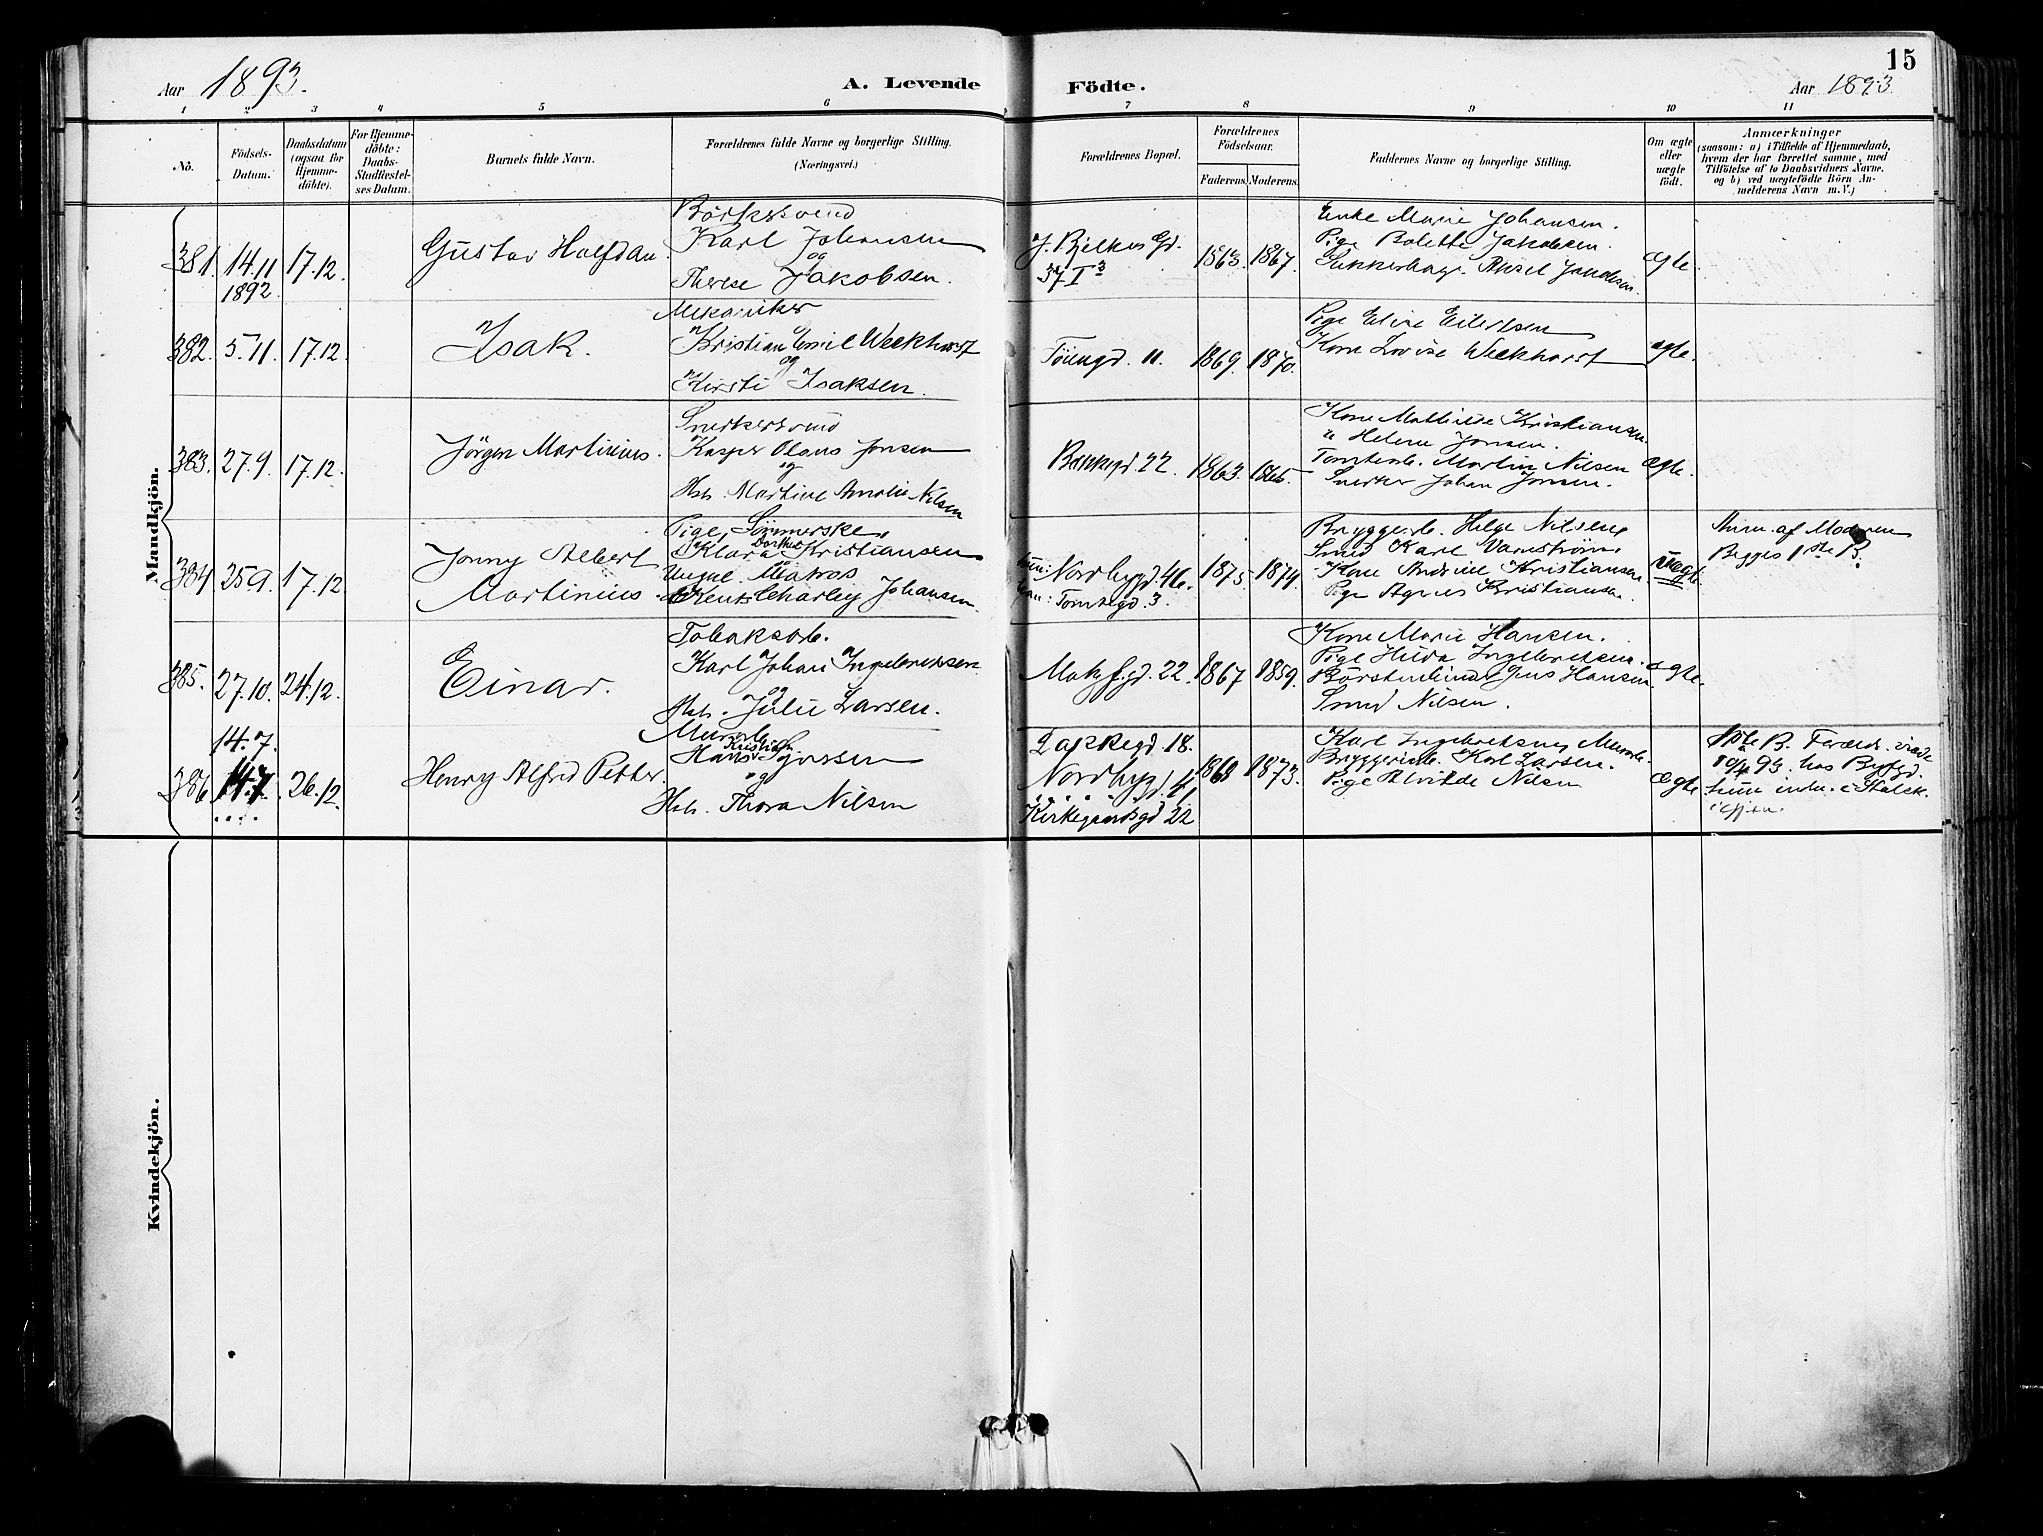 15
Aar 1893.
A. Levende
Födte.
Aar 1893
1 2 3 4 5 6 7 8 9 10 11
No.
Födsels-
Datum.
Daabsdatum
(ogsaa for
Hjemme-
döbte).
For Hjemme-
döbte:
Daabs-
Stadfæstel-
ses Datum.
Barnets fulde Navn.
Forældrenes fulde Navne og borgerlige Stilling.
(Næringsvei.)
Forældrenes Bopæl.
Forældrenes
Födselsaar.
Faderens. Moderens.
Faddernes Navne og borgerlige Stilling.
Om ægte
eller
uægte
födt.
Anmærkninger
(saasom: a) i Tilfælde af Hjemmedaab,
hvem der har forrettet samme, med
Tilföielse af to Daabsvidners Navne.
og b) ved uægtefödte Börn An-
melderens Navn m. V.)
Mandkjön.
381. 14.11 17.12.
1892.
Gustav Halfdan
Karl Johansen
og
Therese Jakobsen.
J. Bjelkes Gd.
37 I
1863. 1867.
Enke Marie Johansen.
Pige Bolette Jakobsen.
Aksel Jakobsen.
ægte.
382. 5.11. 17.12.
Isak.
Mekaniker
Kristian Emil Weekhorst
og
Kirsti Isaksen.
Töiengd. 11.
1869. 1870.
Pige Elise Eilertsen
Kone Lovise Weekhorst
ægte.
383. 27.9. 17.12.
Jörgen Martinius.
Snerkersvend
Kasper Olaus Jonsen
og
Hst. Martine Amalie Nilsen
22.
1863. 1865.
Kone Mathilde Kristiansen
" Helene Jonsen.
Martin Nilsen
Snerker Johan Jonsen.
ægte.
384 25.9. 17.12.
Jonny Albert
Martinius.
Pige, Sömmerske,
Klara Kristiansen
Ungkl. Matros
Charley Johansen.
Nordbygd. 46.
Tomtegd. 3.
1875 1874
Helge Nilsen
Smed Karl
Kone Kristiansen
Pige Agnes Kristiansen.
uægte.
Anm. af Moderen
Begges 1ste B.
385. 27.10. 24.12.
Einar.
Tobaksarb.
Karl Johan Ingebretsen
og
Hst. Julie Larsen.
22.
1867 1859.
Kone Marie Hansen.
Pige Hilda Ingebretsen.
Jens Hansen.
Smed Nilsen.
ægte.
14.7.
386 14.7 26.12.
Henry Alfred Petter.
Murarb.
Hans Kristian
og
Hst. Thora Nilsen
Lakkegd. 18.
Nordbygd.
Kirkegaardsgd 22
1868 1873.
Karl Ingebretsen, Murarb.
Bryggeriarb. Karl Larsen.
Pige Alvilde Nilsen
ægte
1ste B. Foræld. viede
93. hos Byfgd.
Kvindekjön.